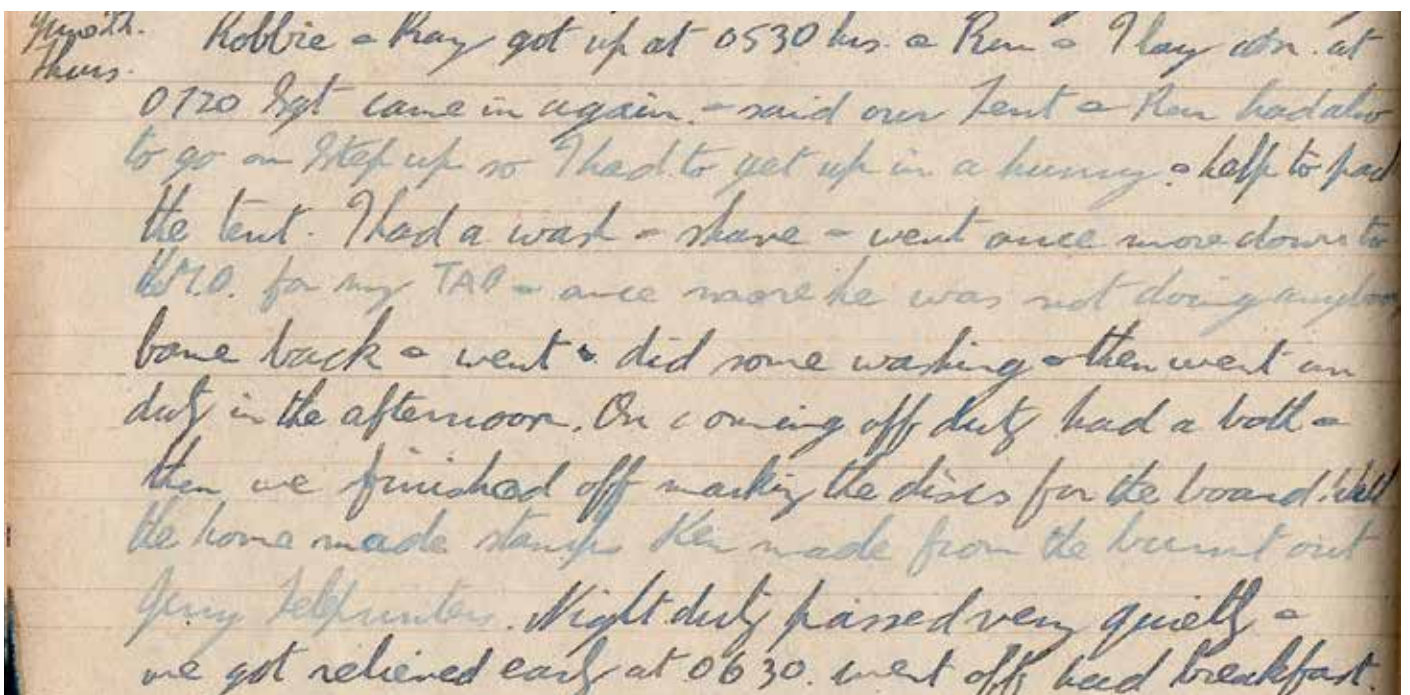 Thurs. Robbie & Ray got up at 0530 hrs. & Ken & I lay on. at
0720 Sgt came in again. & said our Tent & Ken had also
to go on Step up so I had to get up in a hurry. & help to pack
the tent. I had a wash & shave & went once more down to
the M.O. for my TAB & once more he was not doing any
back & went & did some washing & then went on
duty in the afternoon. On coming off duty had a bath &
then we finished off marking the discs for the board. With
the home made stamps Ken made from the burnt out
Jerry Teleprinters. Night duty passed very quietly &
we got relieved early at 0630. went off had breakfast.